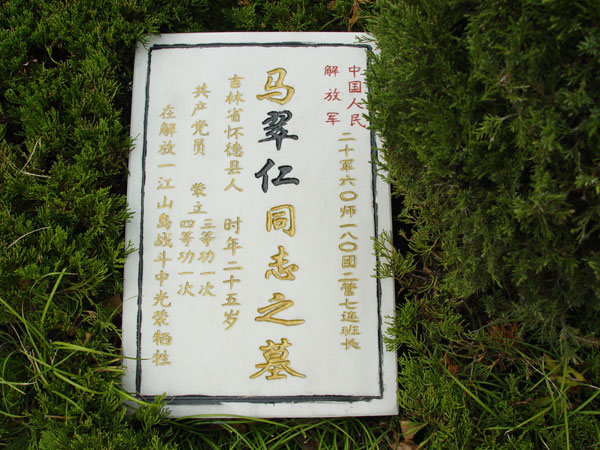 中国人民
解放军
二十军六〇师一八〇团二营七连班长
马翠仁同志之墓
吉林省怀德县人 时年二十五岁
共产党员 荣立
三等功一次
四等功一次
在解放一江山岛战斗中光荣牺牲